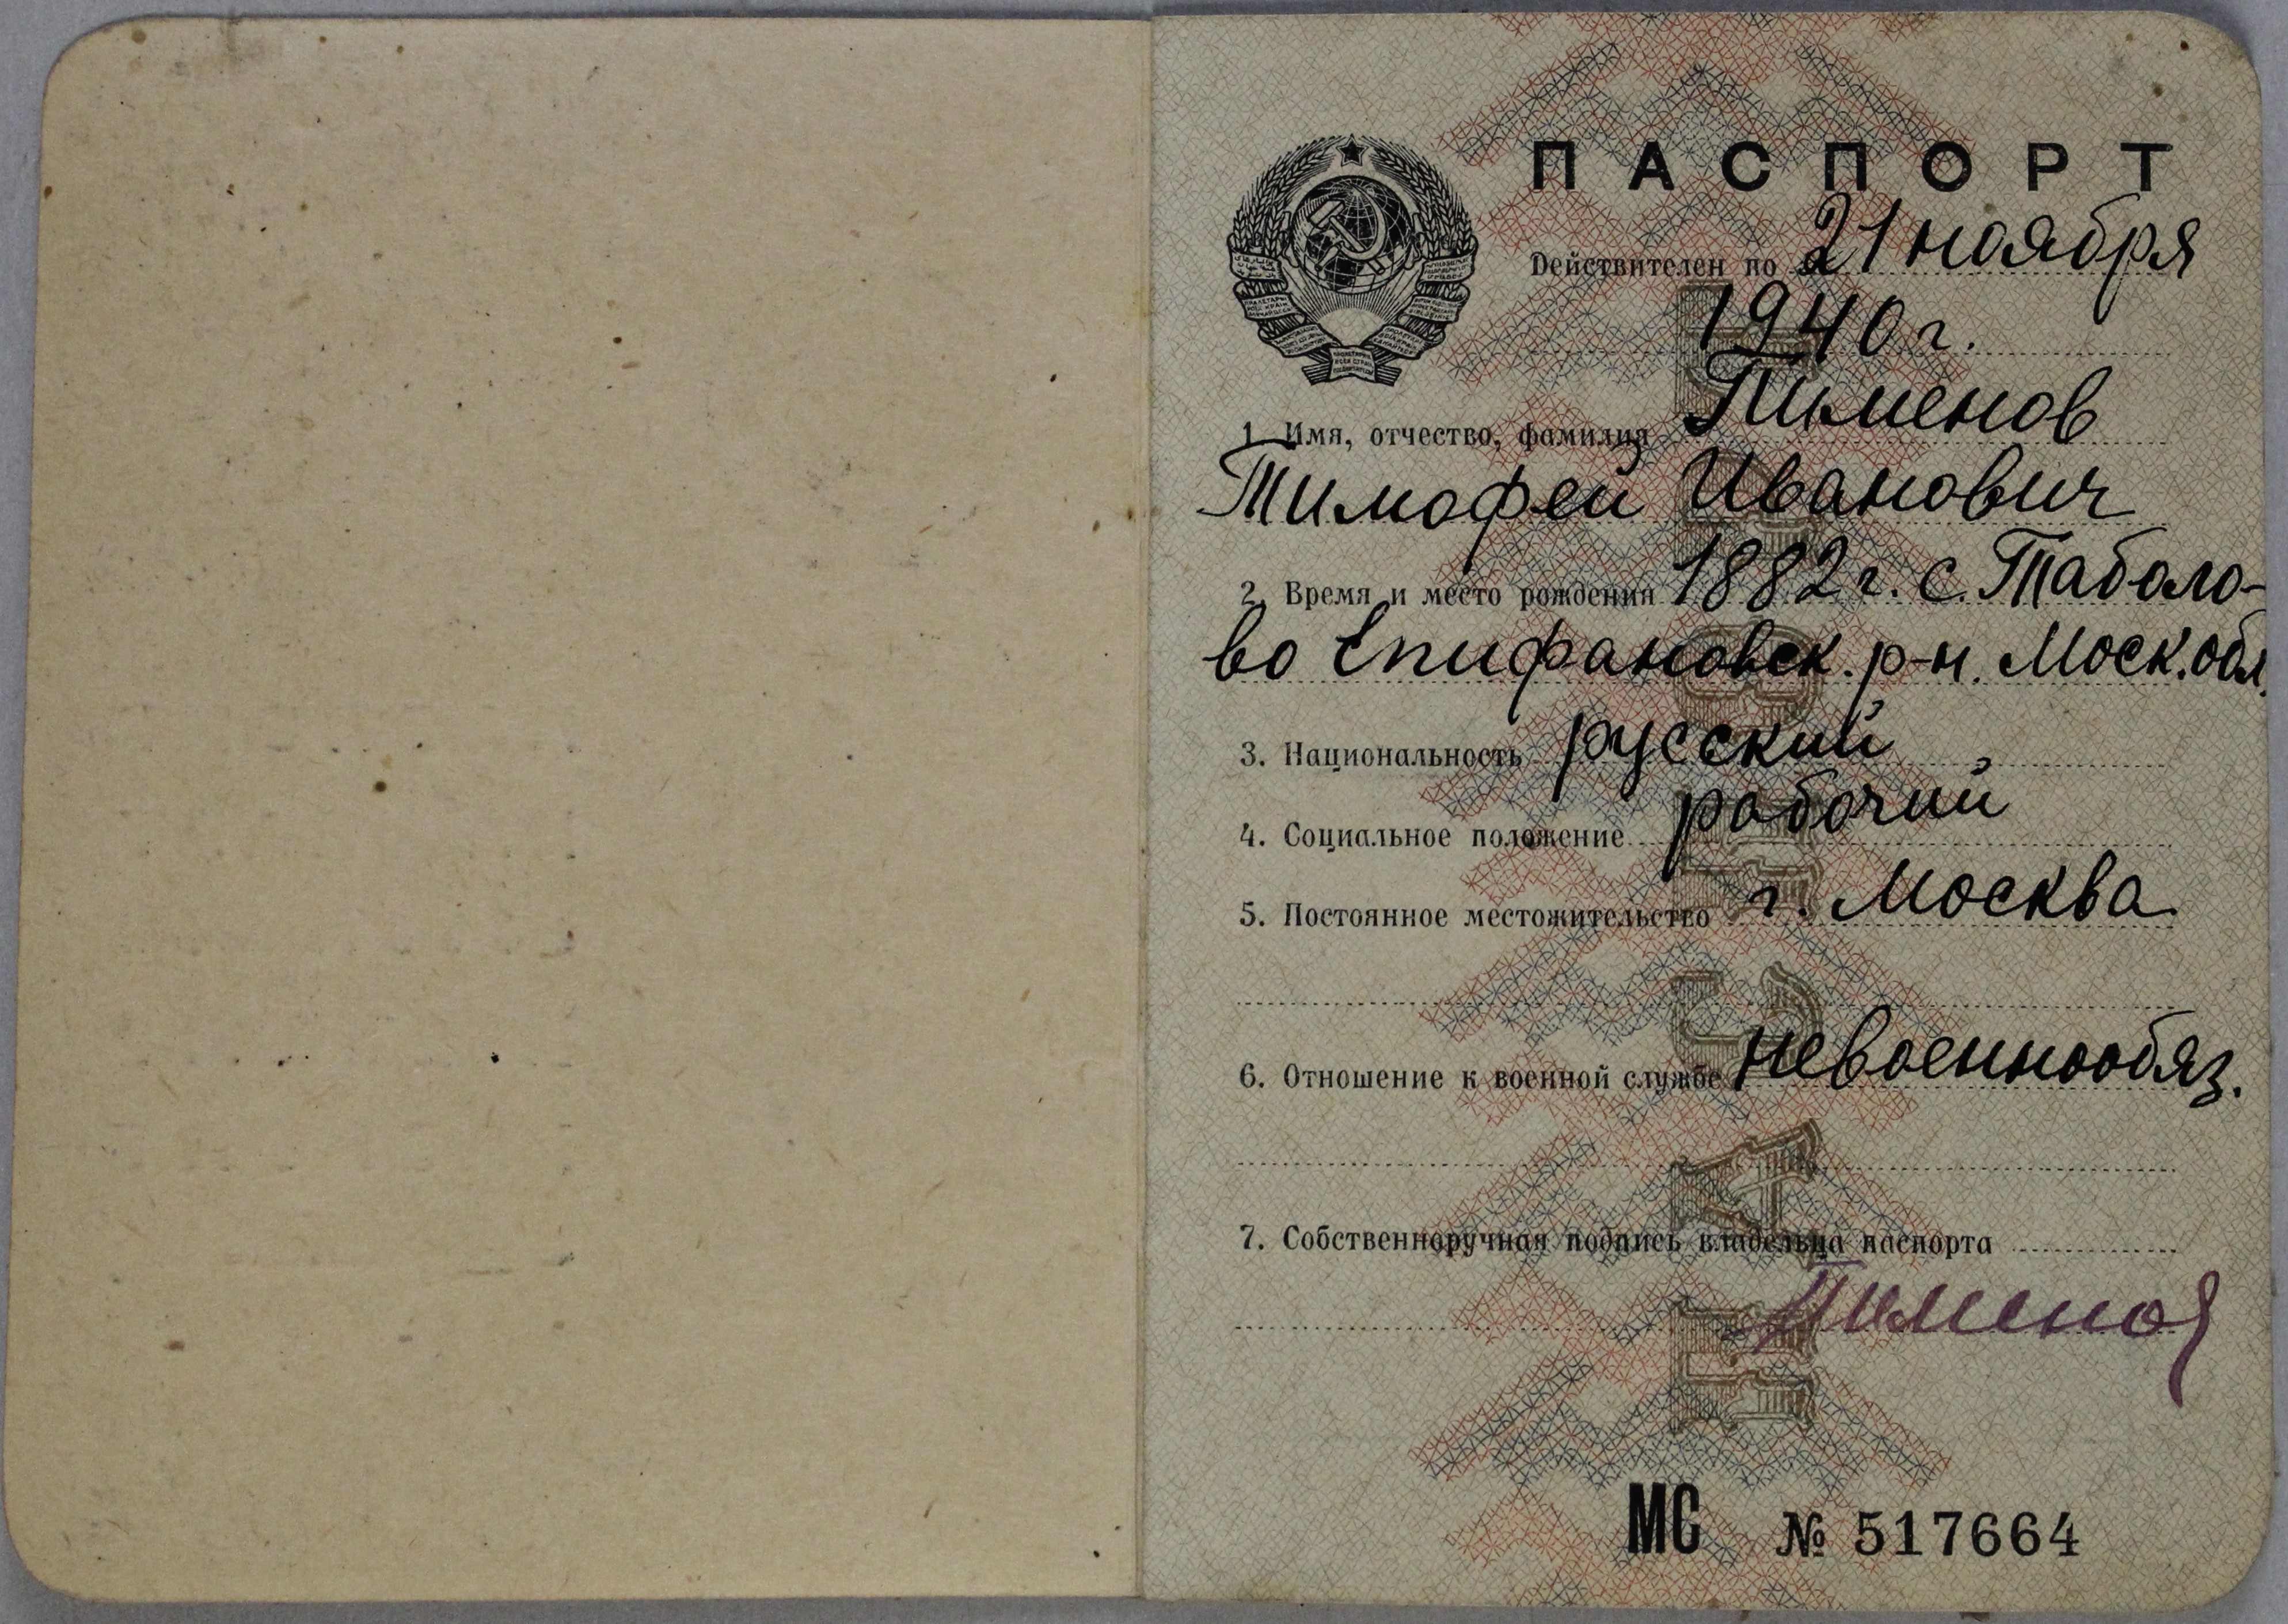 ПАСПОРТ
Действителен по 21 ноября
1940 г.
1. Имя, отчество, фамилия Пименов
Тимофей Иванович
2. Время и место рождения 1882 г. с. Таболо-
во Епифановск. р-н. Моск. обл.
3. Национальность русский
4. Социальное положение рабочий
5. Постоянное местожительство г. Москва
6. Отношение к военной службе невоеннообяз.
7. Собственноручная подпись владельца паспорта
Пименов
МС № 517664